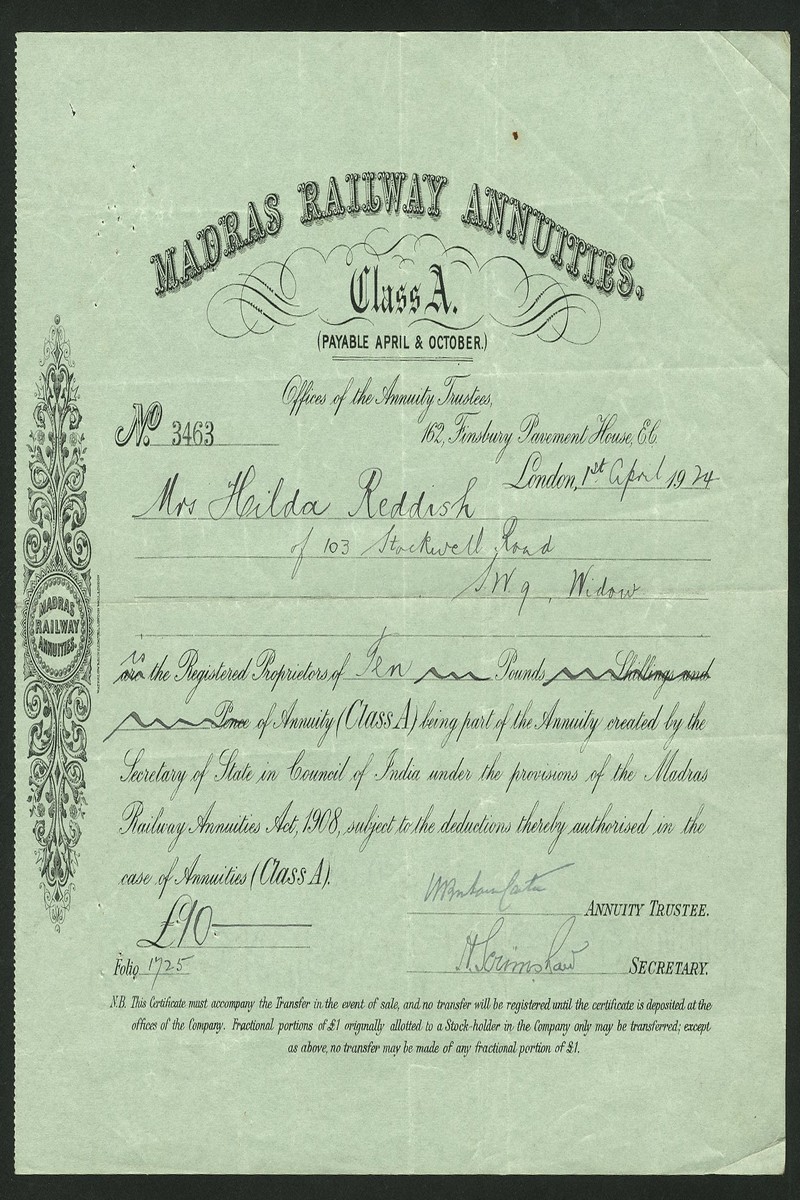 MADRAS RAILWAY ANNUITIES.
Class A.
(PAYABLE APRIL & OCTOBER.)
Offices of the Annuity Trustees,
No. 3463
162, Finsbury Pavement House, E.C.
London, 1st April 1924
Mrs Hilda Reddish
of 103 Stockwell Road
S.W 9, Widow
MADRAS
RAILWAY
ANNUITIES.
is
are the Registered Proprietors of Ten Pounds Shillings and
Pence of Annuity (Class A) being part of the Annuity created by the
Secretary of State in Council of India under the provisions of the Madras
Railway Annuities Act, 1908, subject to the deductions thereby authorised in the
case of Annuities (Class A).
ANNUITY TRUSTEE.
£10
Folio 1725
H. Scrimshaw SECRETARY.
N.B. This Certificate must accompany the Transfer in the event of sale, and no transfer will be registered until the certificate is deposited at the
offices of the Company. Fractional portions of £1 originally allotted to a Stock-holder in the Company only may be transferred; except
as above, no transfer may be made of any fractional portion of £1.